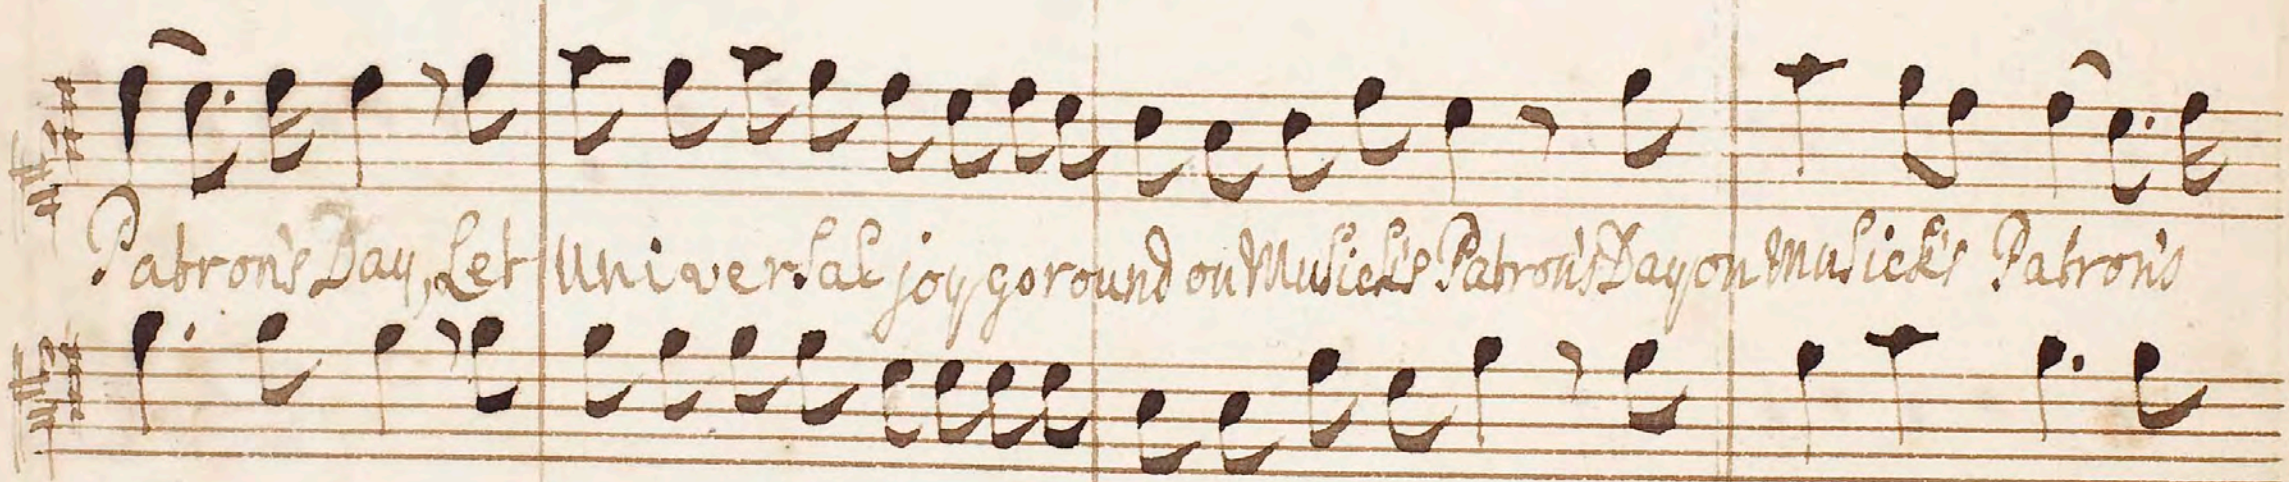 Patron's Day, Let Universal joy go round on Musick's Patron's Day on Musick's Patron's